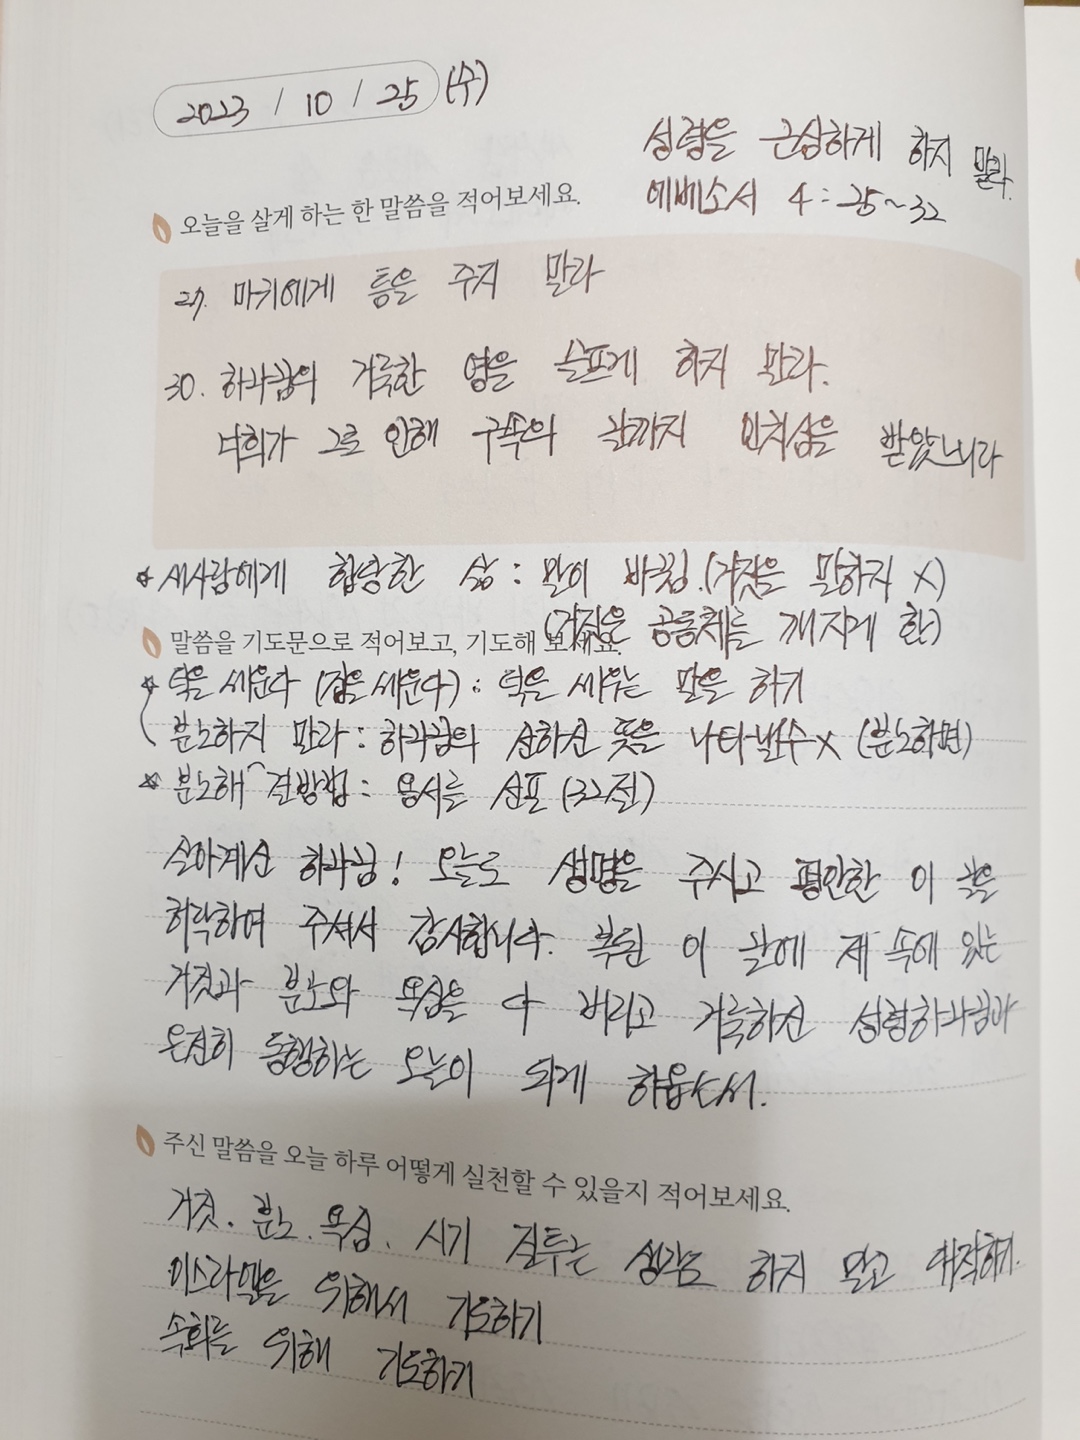 2023 / 10 / 25 (수)
성령을 근심하게 하지 말라.
에베소서 4:25~32
오늘을 살게 하는 한 말씀을 적어보세요.
27. 마귀에게 틈을 주지 말라
30. 하나님의 거룩한 영을 슬프게 하지 말라.
너희가 그로 인해 구속의 날까지 인치심을 받았느니라
* 새사람에게 합당한 삶 : 말이 바뀜. (거짓을 말하지 X)
(거짓은 공동체를 깨지게 함)
말씀을 기도문으로 적어보고, 기도해 보세요.
* 덕을 세운다 (집을 세운다) : 덕을 세우는 말을 하기
분노하지 말라 : 하나님의 선하신 뜻을 나타낼수 X (분노하면)
* 분노해결방법 : 용서를 선포 (32절)
살아계신 하나님! 오늘도 생명을 주시고 평안한 이 날을
허락하여 주셔서 감사합니다. 복된 이 날에 제 속에 있는
거짓과 분노와 욕심을 다 버리고 거룩하신 성령하나님과
온전히 동행하는 오늘이 되게 하옵소서.
주신 말씀을 오늘 하루 어떻게 실천할 수 있을지 적어보세요.
거짓. 분노. 욕심. 시기 질투는 생각도 하지 말고 대적하기.
이스라엘을 위해서 기도하기
속회를 위해 기도하기